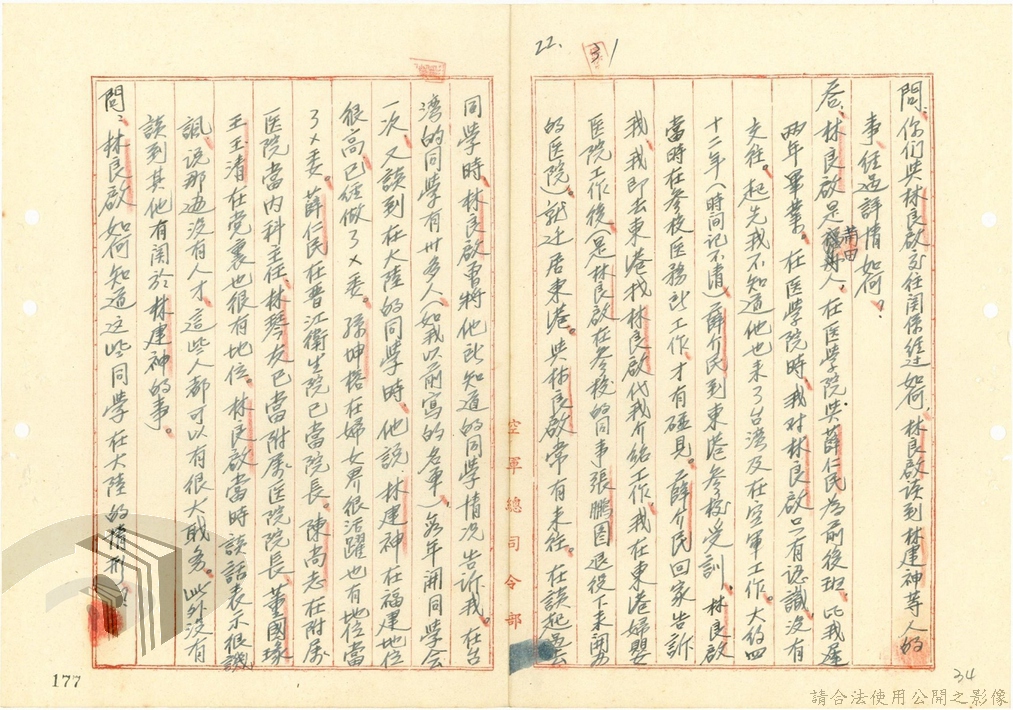 22. 31
問：你们與林良啟交往関係经过如何，林良啟谈到林建神等人的
事经过詳情如何？
答：林良啟是莆田人。在医学院與薛仁民為前後班，比我遲
两年畢業。在医学院時，我对林良啟只有認識没有
交往。起先我不知道他也来了台湾及在空軍工作。大约四
十二年（時间记不清）薛介民到東港参校受訓，林良啟
當時在参校医務所工作，才有碰見。薛介民回家告訴
我，我即去東港找林良啟代我介绍工作，我在東港婦嬰
医院工作後（是林良啟在参校的同事張鵬圖退役下来開办
的医院）就迁居東港。與林良啟常有来往。在談起過去
同学時，林良啟曾将他所知道的同学情况告訴我。在台
湾的同学有卅多人（如我以前寫的名单）每年開同学会
一次，又談到在大陸的同学時，他説林建神在福建地位
很高，已经做了×委。孫坤榕在婦女界很活躍也有地位當
了×委。薛仁民在晋江衛生院已當院長。陳尚志在附属
医院當内科主任，林琴友已當附属医院院長，董國琭
王玉清在党裏也很有地位。林良啟當時談話表示很譏
諷，说那边没有人才，這些人都可以有很大職务。此外没有
談到其他有関於林建神的事。
問：林良啟如何知道这些同学在大陸的情形？
空軍總司令部
177
34
請合法使用公開之影像